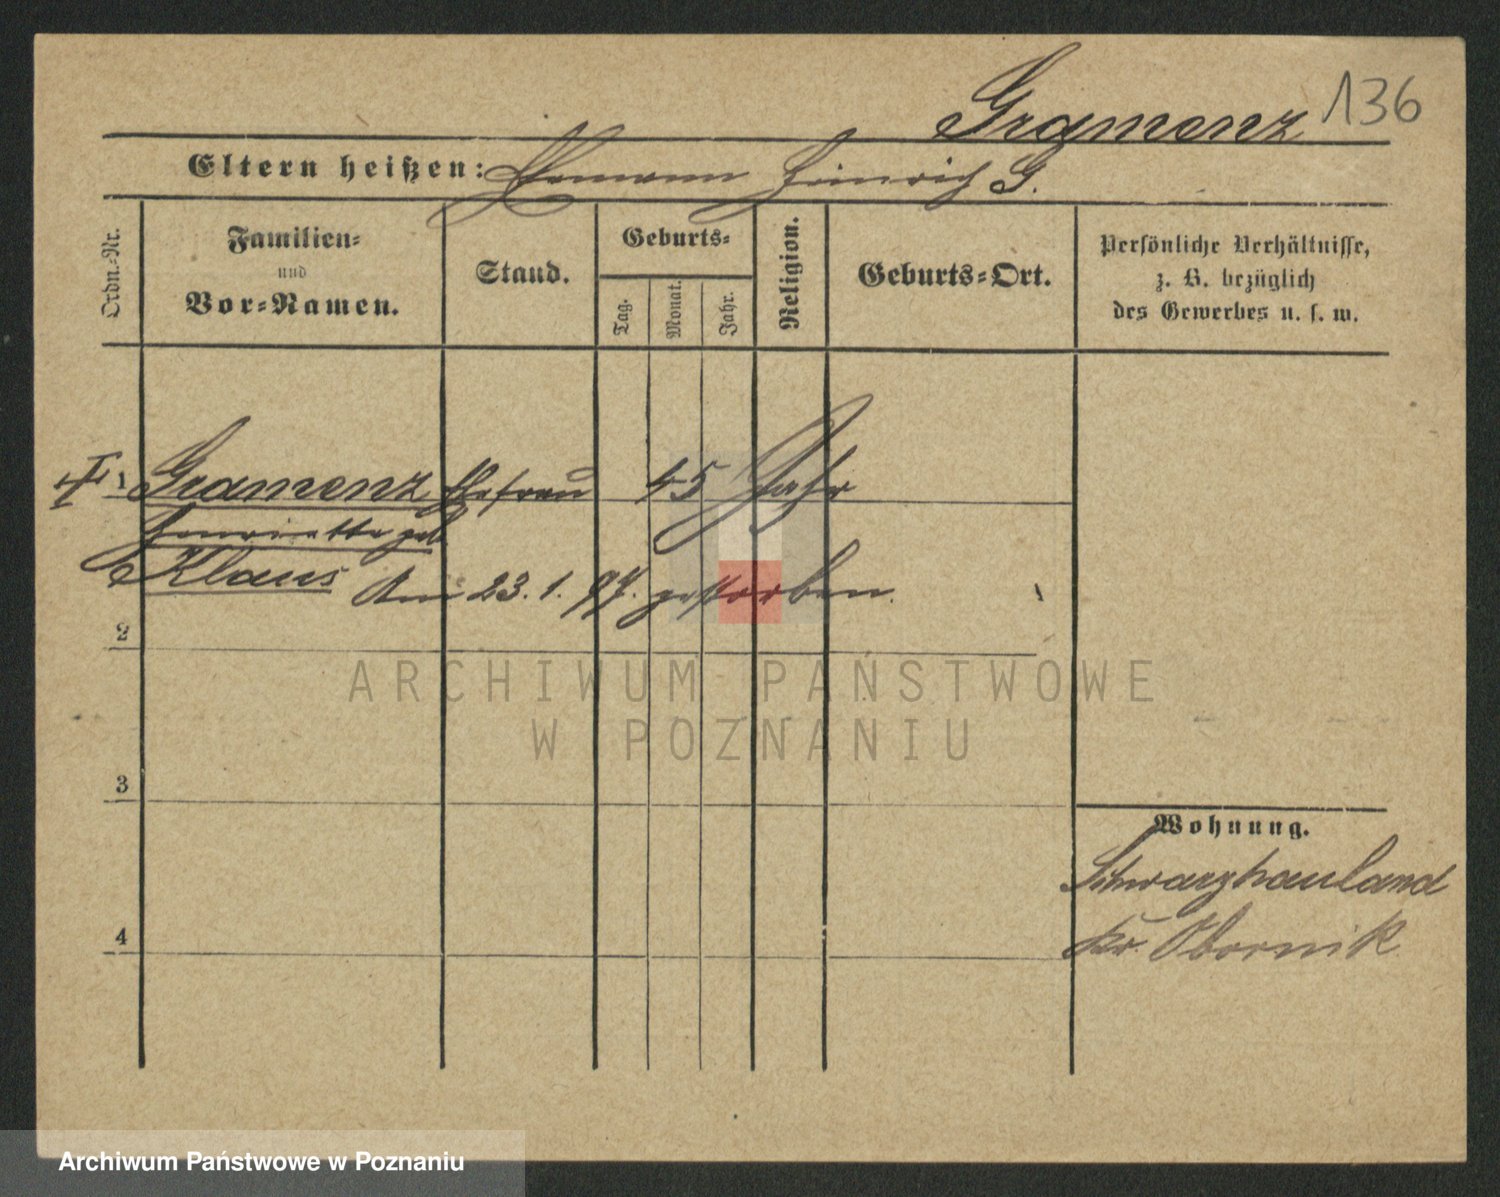 Gramenz 136
Eltern heißen: Hermann Heinrich G.
Ordn.-Nr.
Familien-
und
Vor-Namen.
Stand.
Geburts-
Tag.
Monat.
Jahr.
Religion.
Geburts-Ort.
Persönliche Verhältnisse,
z. B. bezüglich
des Gewerbes u. s. w.
1 Gramenz Ehefrau 45 Jahr
Henriette geb
Klaus Am 23.1.97. gestorben.
2
ARCHIWUM PAŃSTWOWE
W POZNANIU
3
Wohnung.
Schwarzhauland
Kr. Obornik
4
Archiwum Państwowe w Poznaniu